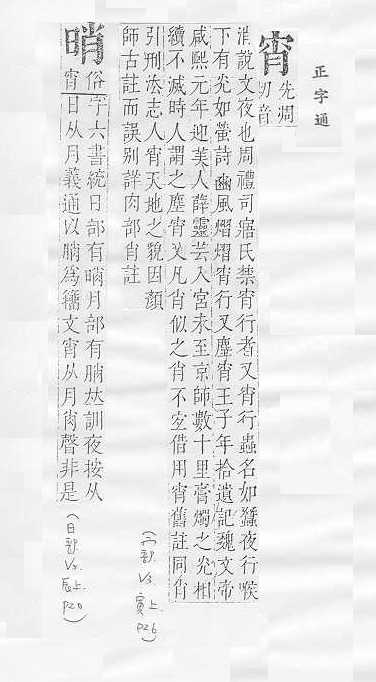 正字通
宵
先凋
切音
消說文夜也周禮司寤氏禁宵行者又宵行蟲名如蠶夜行喉
下有光如螢詩豳風熠熠宵行又塵宵王子年拾遺記魏文帝
咸熙元年迎美人薛靈芸入宮未至京師數十里膏燭之光相
續不滅時人謂之塵宵又凡肖似之肖不宜借用宵舊註同肖
引刑法志人宵天地之貌因顏
師古註而誤別詳肉部肖註
(宀部
V3.
寅上.
P26)
晭
俗
宵
字六書統日部有晭月部有朘訓夜按从
日从月義通以朘為籀文宵从月肖聲非是
(日部
V5.
辰上.
P20)